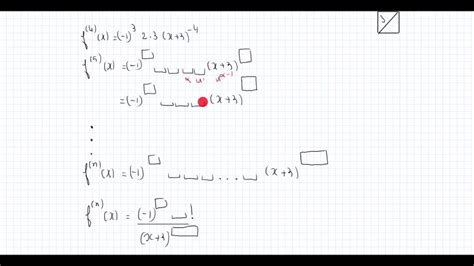 f^(4)(x) = (-1)^3 2·3 (x+3)^-4
f^(5)(x) = (-1)^□ ⎵ ⎵ ⎵ ⎵ (x+3)^□
= (-1)^□ ⎵ ⎵ ⎵ (x+3)^□
f^(n)(x) = (-1)^□ ⎵ ⎵ ⎵ ... ⎵ (x+3)^□
f^(n)(x) = (-1)^□ ⎵!
(x+3)^□